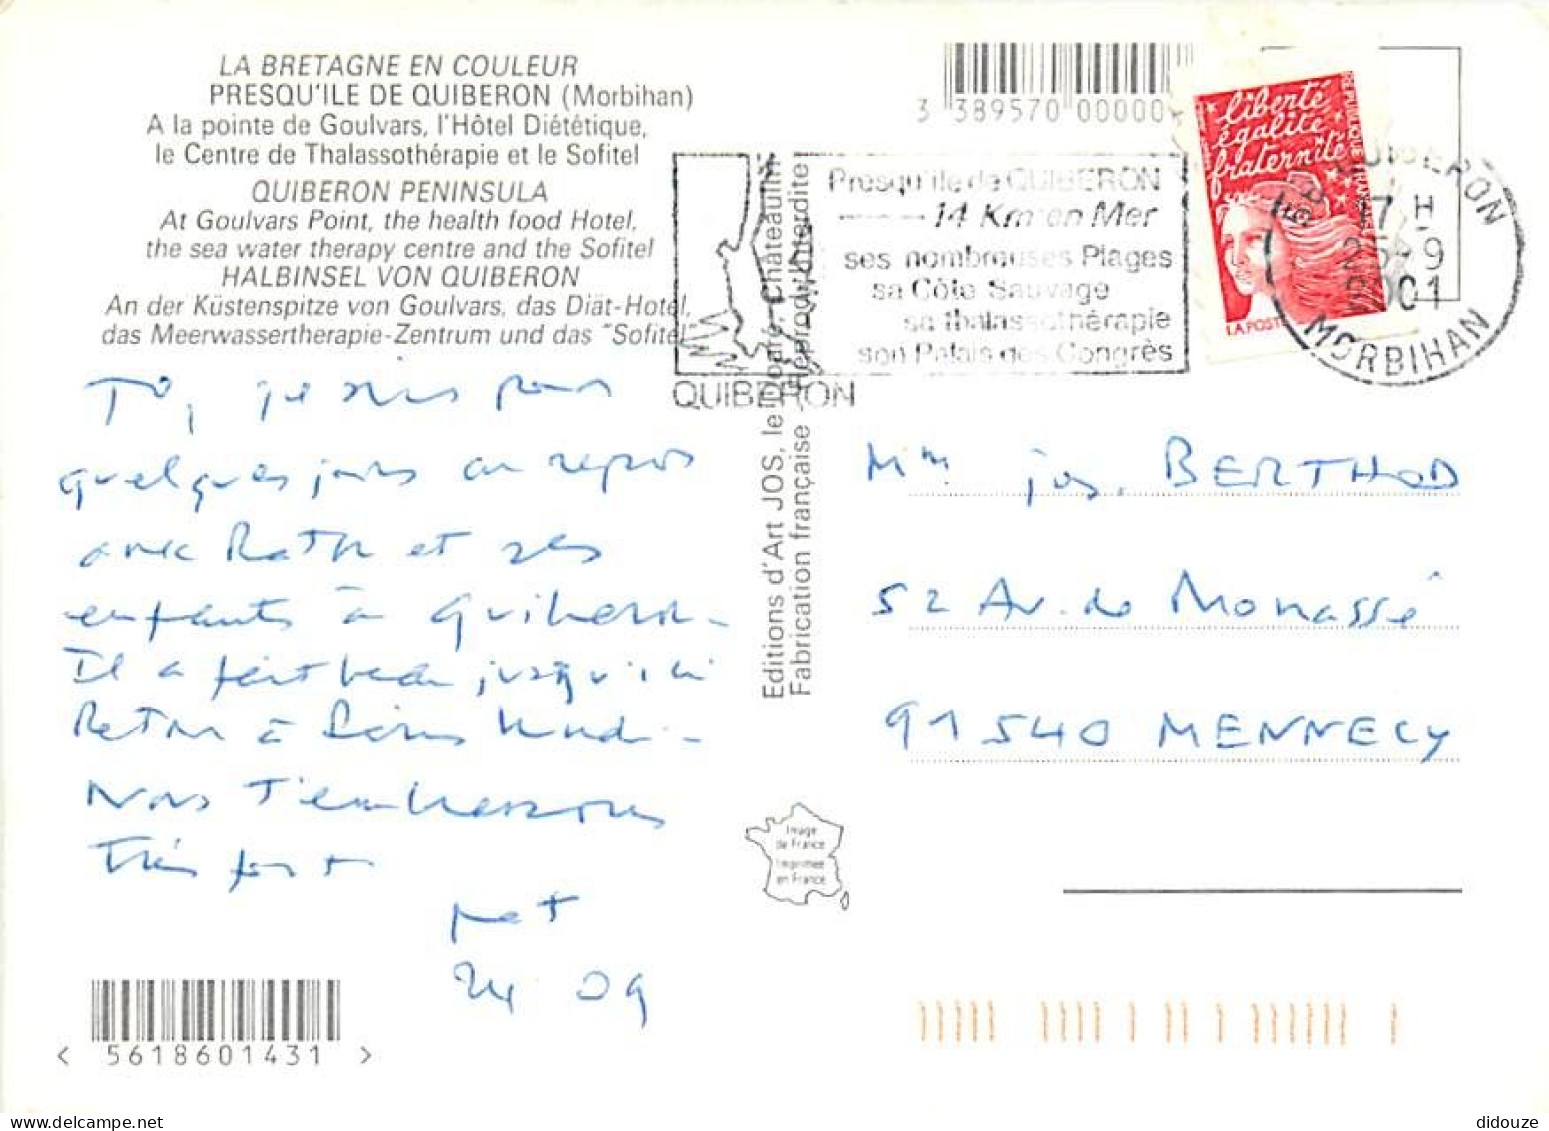 LA BRETAGNE EN COULEUR
PRESQU'ILE DE QUIBERON (Morbihan)
A la pointe de Goulvars, l'Hôtel Diététique,
le Centre de Thalassothérapie et le Sofitel
QUIBERON PENINSULA
At Goulvars Point, the health food Hotel,
the sea water therapy centre and the Sofitel
HALBINSEL VON QUIBERON
An der Küstenspitze von Goulvars, das Diät-Hotel,
das Meerwassertherapie-Zentrum und das "Sofitel"
je suis pour
quelques jours au repos
avec et ses
enfants à Quiberon -
Il a fait beau jusqu'ici
Retour à Paris
Nous t'embrassons
très fort
24 09
5618601431
Editions d'Art JOS, le Doaré, Châteaulin
Fabrication française Reprod. Interdite
3 389570 00000
Presqu'ile de QUIBERON
14 Km en Mer
ses nombreuses Plages
sa Côte Sauvage
sa thalassothérapie
son Palais des Congrès
QUIBERON
liberté
égalité
fraternité
LA POSTE
QUIBERON
17 H
25-9
2001
MORBIHAN
Mme Jos. BERTHOD
52 Av. de Monassé
91540 MENNECY
Image
de France
Imprimée
en France
didouze